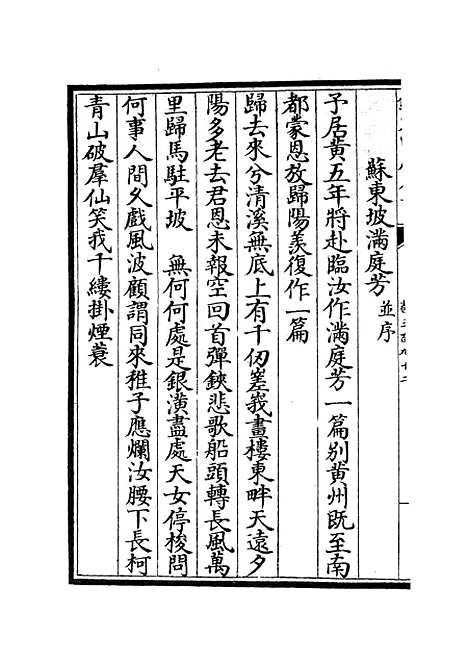 蘇東坡滿庭芳並序
予居黄五年將赴臨汝作滿庭芳一篇别黄州既至南
都蒙恩放歸陽羨復作一篇
歸去來兮清溪無底上有千仭嵳峩畫樓東畔天遠夕
陽多老去君恩未報空回首彈鋏悲歌船頭轉長風萬
里歸馬駐平坡 無何何處是銀潢盡處天女停梭問
何事人間久戲風波顧謂同來稚子應爛汝腰下長柯
青山破羣仙笑我千縷掛煙蓑